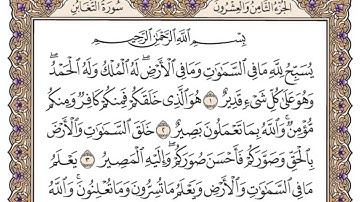 سُورَةُ التَّغَابُنِ الجُزْءُ الثَّامِنُ وَالعِشْرُونَ
بِسْمِ اللَّهِ الرَّحْمَٰنِ الرَّحِيمِ
يُسَبِّحُ لِلَّهِ مَا فِي السَّمَٰوَٰتِ وَمَا فِي الْأَرْضِ ۖ لَهُ الْمُلْكُ وَلَهُ الْحَمْدُ ۖ
وَهُوَ عَلَىٰ كُلِّ شَيْءٍ قَدِيرٌ ١ هُوَ الَّذِي خَلَقَكُمْ فَمِنكُمْ كَافِرٌ وَمِنكُم
مُّؤْمِنٌ ۚ وَاللَّهُ بِمَا تَعْمَلُونَ بَصِيرٌ ٢ خَلَقَ السَّمَٰوَٰتِ وَالْأَرْضَ
بِالْحَقِّ وَصَوَّرَكُمْ فَأَحْسَنَ صُوَرَكُمْ ۖ وَإِلَيْهِ الْمَصِيرُ ٣ يَعْلَمُ
مَا فِي السَّمَٰوَٰتِ وَالْأَرْضِ وَيَعْلَمُ مَا تُسِرُّونَ وَمَا تُعْلِنُونَ ۚ وَاللَّهُ